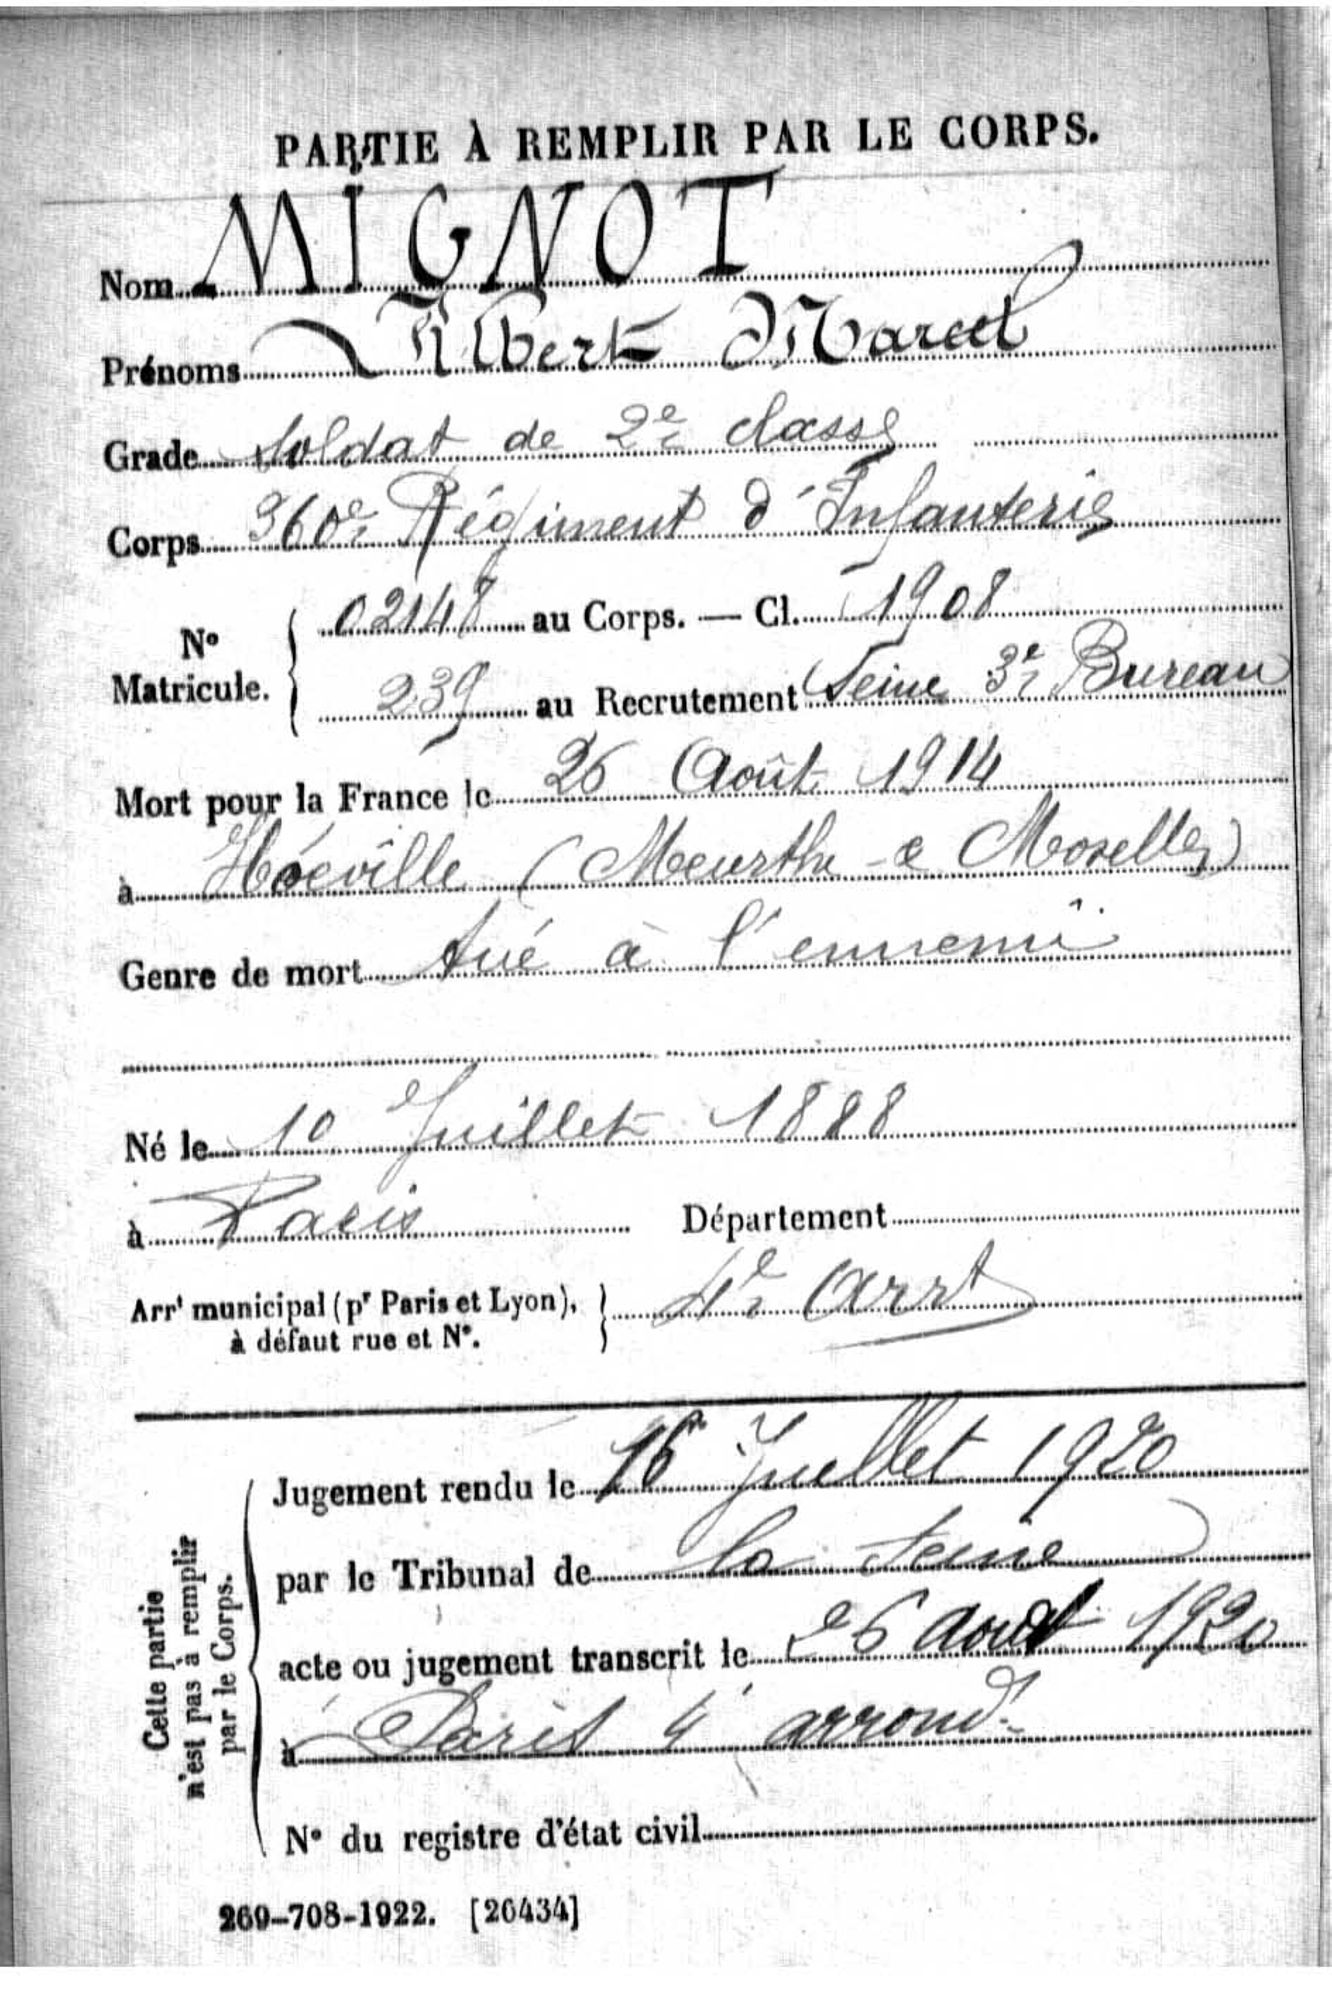 PARTIE À REMPLIR PAR LE CORPS.
Nom MIGNOT
Prénoms Albert Marcel
Grade Soldat de 2e classe
Corps 360e Régiment d'Infanterie
No Matricule. { 02148 au Corps. — Cl. 1908
239 au Recrutement Seine 3e Bureau
Mort pour la France le 26 Août 1914
à Hoéville (Meurthe-e Moselle)
Genre de mort tué à l'ennemi
Né le 10 Juillet 1888
à Paris Département
Arrt municipal (pr Paris et Lyon), à défaut rue et No. } 4e Arrt
Cette partie n'est pas à remplir par le Corps.
Jugement rendu le 16 Juillet 1920
par le Tribunal de la Seine
acte ou jugement transcrit le 26 août 1920
à Paris 4e arrond.
No du registre d'état civil
269-708-1922. [26434]